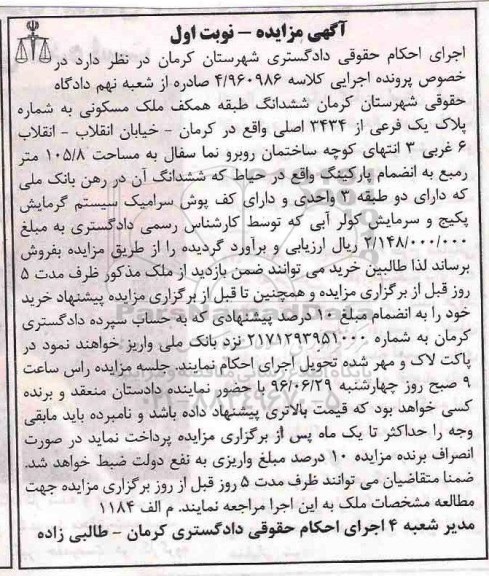 آگهی مزایده - نوبت اول
اجرای احکام حقوقی دادگستری شهرستان کرمان در نظر دارد در
خصوص پرونده اجرایی کلاسه ۴/۹۶۰۹۸۶ صادره از شعبه نهم دادگاه
حقوقی شهرستان کرمان ششدانگ طبقه همکف ملک مسکونی به شماره
پلاک یک فرعی از ۳۴۳۴ اصلی واقع در کرمان - خیابان انقلاب - انقلاب
۶ غربی ۳ انتهای کوچه ساختمان روبرو نما سفال به مساحت ۱۰۵/۸ متر
رمبع به انضمام پارکینگ واقع در حیاط که ششدانگ آن در رهن بانک ملی
که دارای دو طبقه ۳ واحدی و دارای کف پوش سرامیک سیستم گرمایش
پکیج و سرمایش کولر آبی که توسط کارشناس رسمی دادگستری به مبلغ
۲/۱۴۸/۰۰۰/۰۰۰ ریال ارزیابی و برآورد گردیده را از طریق مزایده بفروش
برساند لذا طالبین خرید می توانند ضمن بازدید از ملک مذکور ظرف مدت ۵
روز قبل از برگزاری مزایده و همچنین تا قبل از برگزاری مزایده پیشنهاد خرید
خود را به انضمام مبلغ ۱۰ درصد پیشنهادی که به حساب سپرده دادگستری
کرمان به شماره ۲۱۷۱۲۹۳۹۵۱۰۰۰ نزد بانک ملی واریز خواهند نمود در
پاکت لاک و مهر شده تحویل اجرای احکام نمایند. جلسه مزایده راس ساعت
۹ صبح روز چهارشنبه ۹۶/۰۶/۲۹ با حضور نماینده دادستان منعقد و برنده
کسی خواهد بود که قیمت بالاتری پیشنهاد داده باشد و نامبرده باید مابقی
وجه را حداکثر تا یک ماه پس از برگزاری مزایده پرداخت نماید در صورت
انصراف برنده مزایده ۱۰ درصد مبلغ واریزی به نفع دولت ضبط خواهد شد.
ضمنا متقاضیان می توانند ظرف مدت ۵ روز قبل از روز برگزاری مزایده جهت
مطالعه مشخصات ملک به این اجرا مراجعه نمایند. م الف ۱۱۸۴
مدیر شعبه ۴ اجرای احکام حقوقی دادگستری کرمان - طالبی زاده